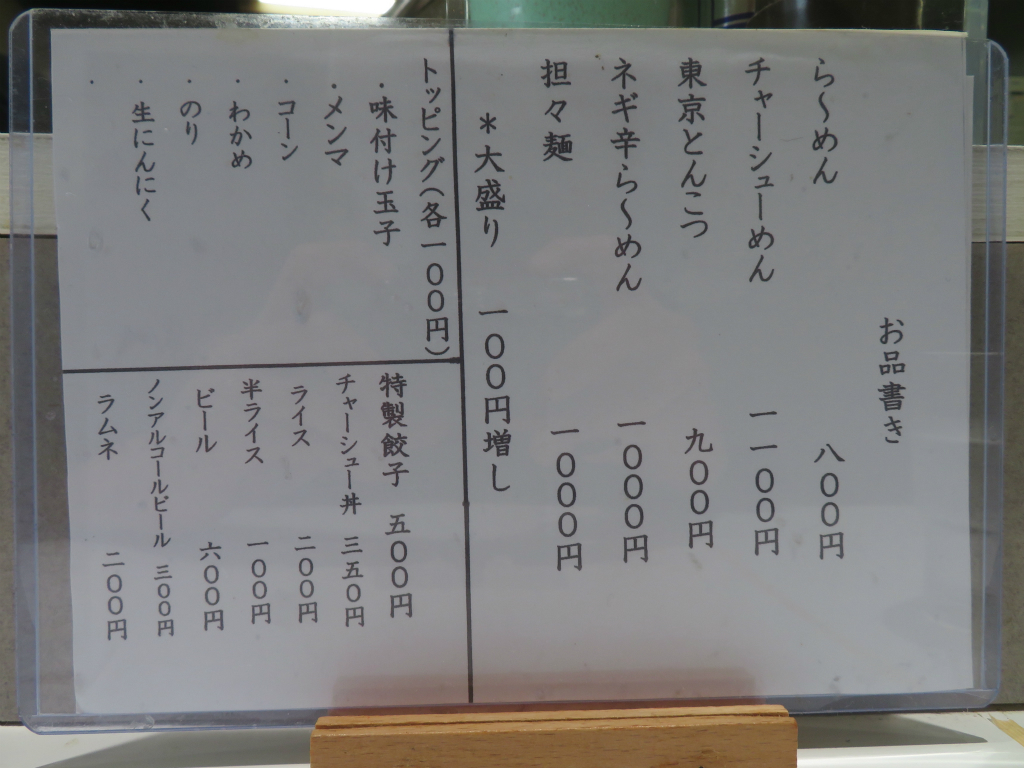 お品書き
ら～めん 八〇〇円
チャーシューめん 一一〇〇円
東京とんこつ 九〇〇円
ネギ辛ら～めん 一〇〇〇円
担々麺 一〇〇〇円
＊大盛り 一〇〇円増し
トッピング（各一〇〇円）
・味付け玉子
・メンマ
・コーン
・わかめ
・のり
・生にんにく
・
特製餃子 五〇〇円
チャーシュー丼 三五〇円
ライス 二〇〇円
半ライス 一〇〇円
ビール 六〇〇円
ノンアルコールビール 三〇〇円
ラムネ 二〇〇円